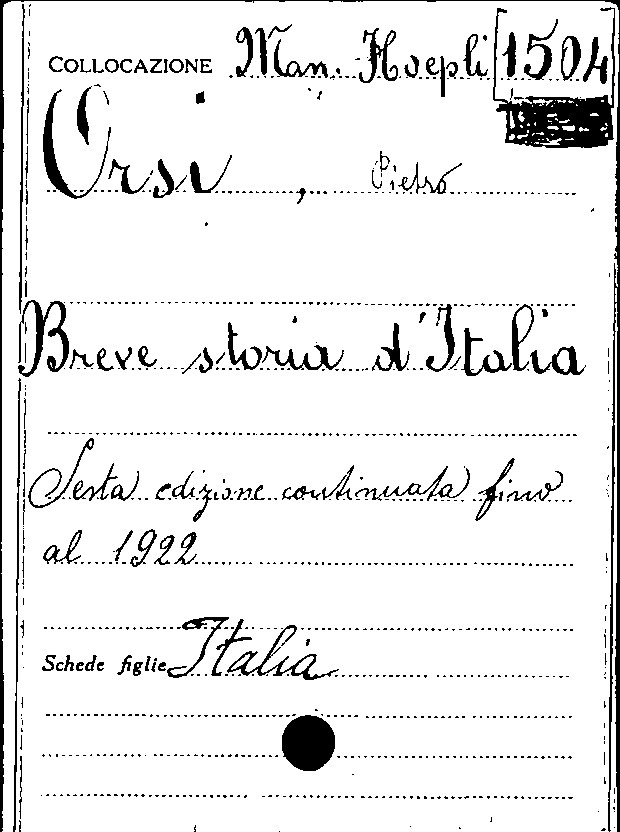 COLLOCAZIONE Man. Hoepli [1504
Orsi, Pietro
Breve storia d'Italia
Sesta edizione continuata fino
al 1922
Schede figlie Italia